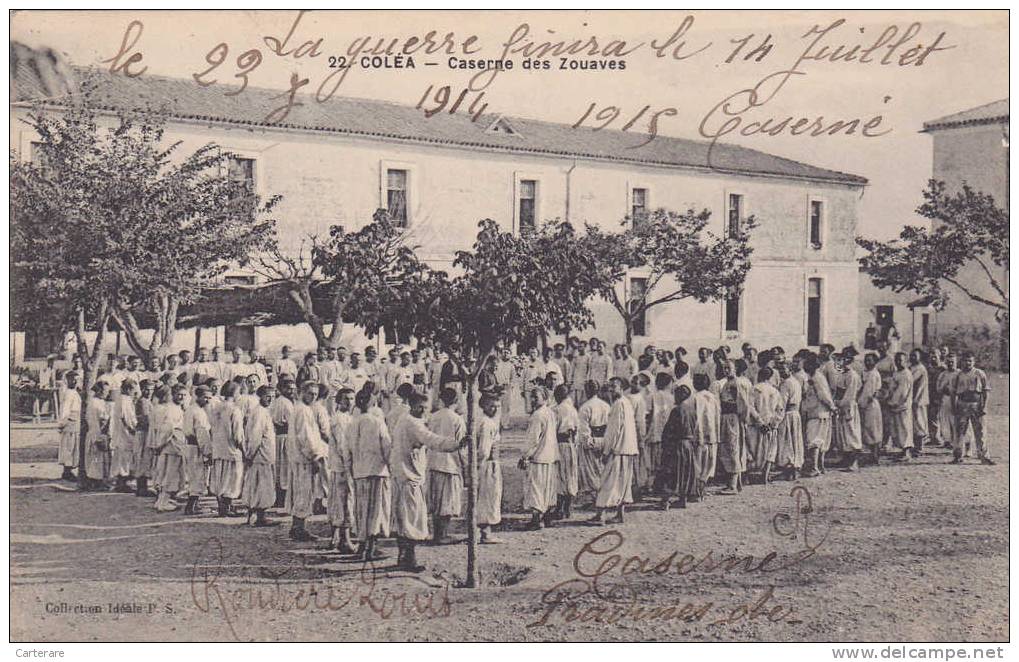 La guerre finira le 14 Juillet
le 23
22. COLÉA — Caserne des Zouaves
1914 1915 Caserné
Caserne
Rouvière Louis
Collection Idéale P. S.
Carterare
www.delcampe.net